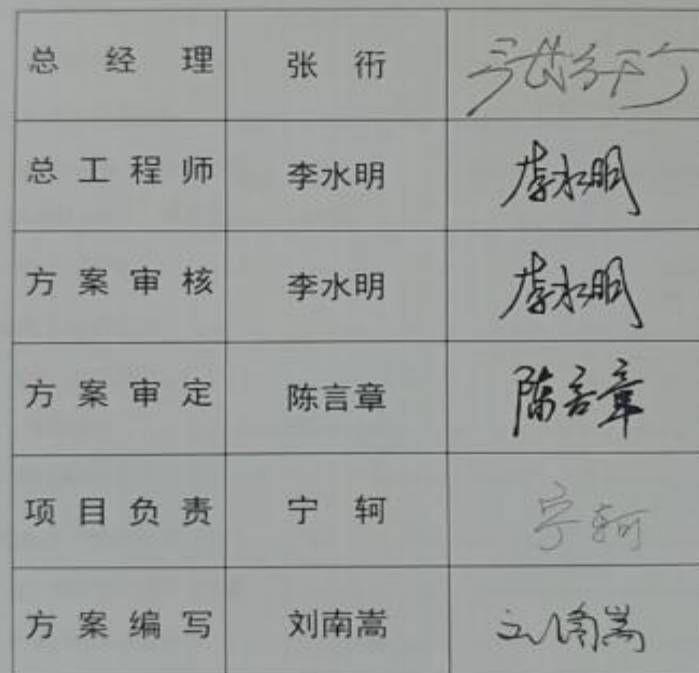 总 经 理 张 衎 张衎
总 工 程 师 李水明 李水明
方 案 审 核 李水明 李水明
方 案 审 定 陈言章 陈言章
项 目 负 责 宁 轲 宁轲
方 案 编 写 刘南嵩 刘南嵩